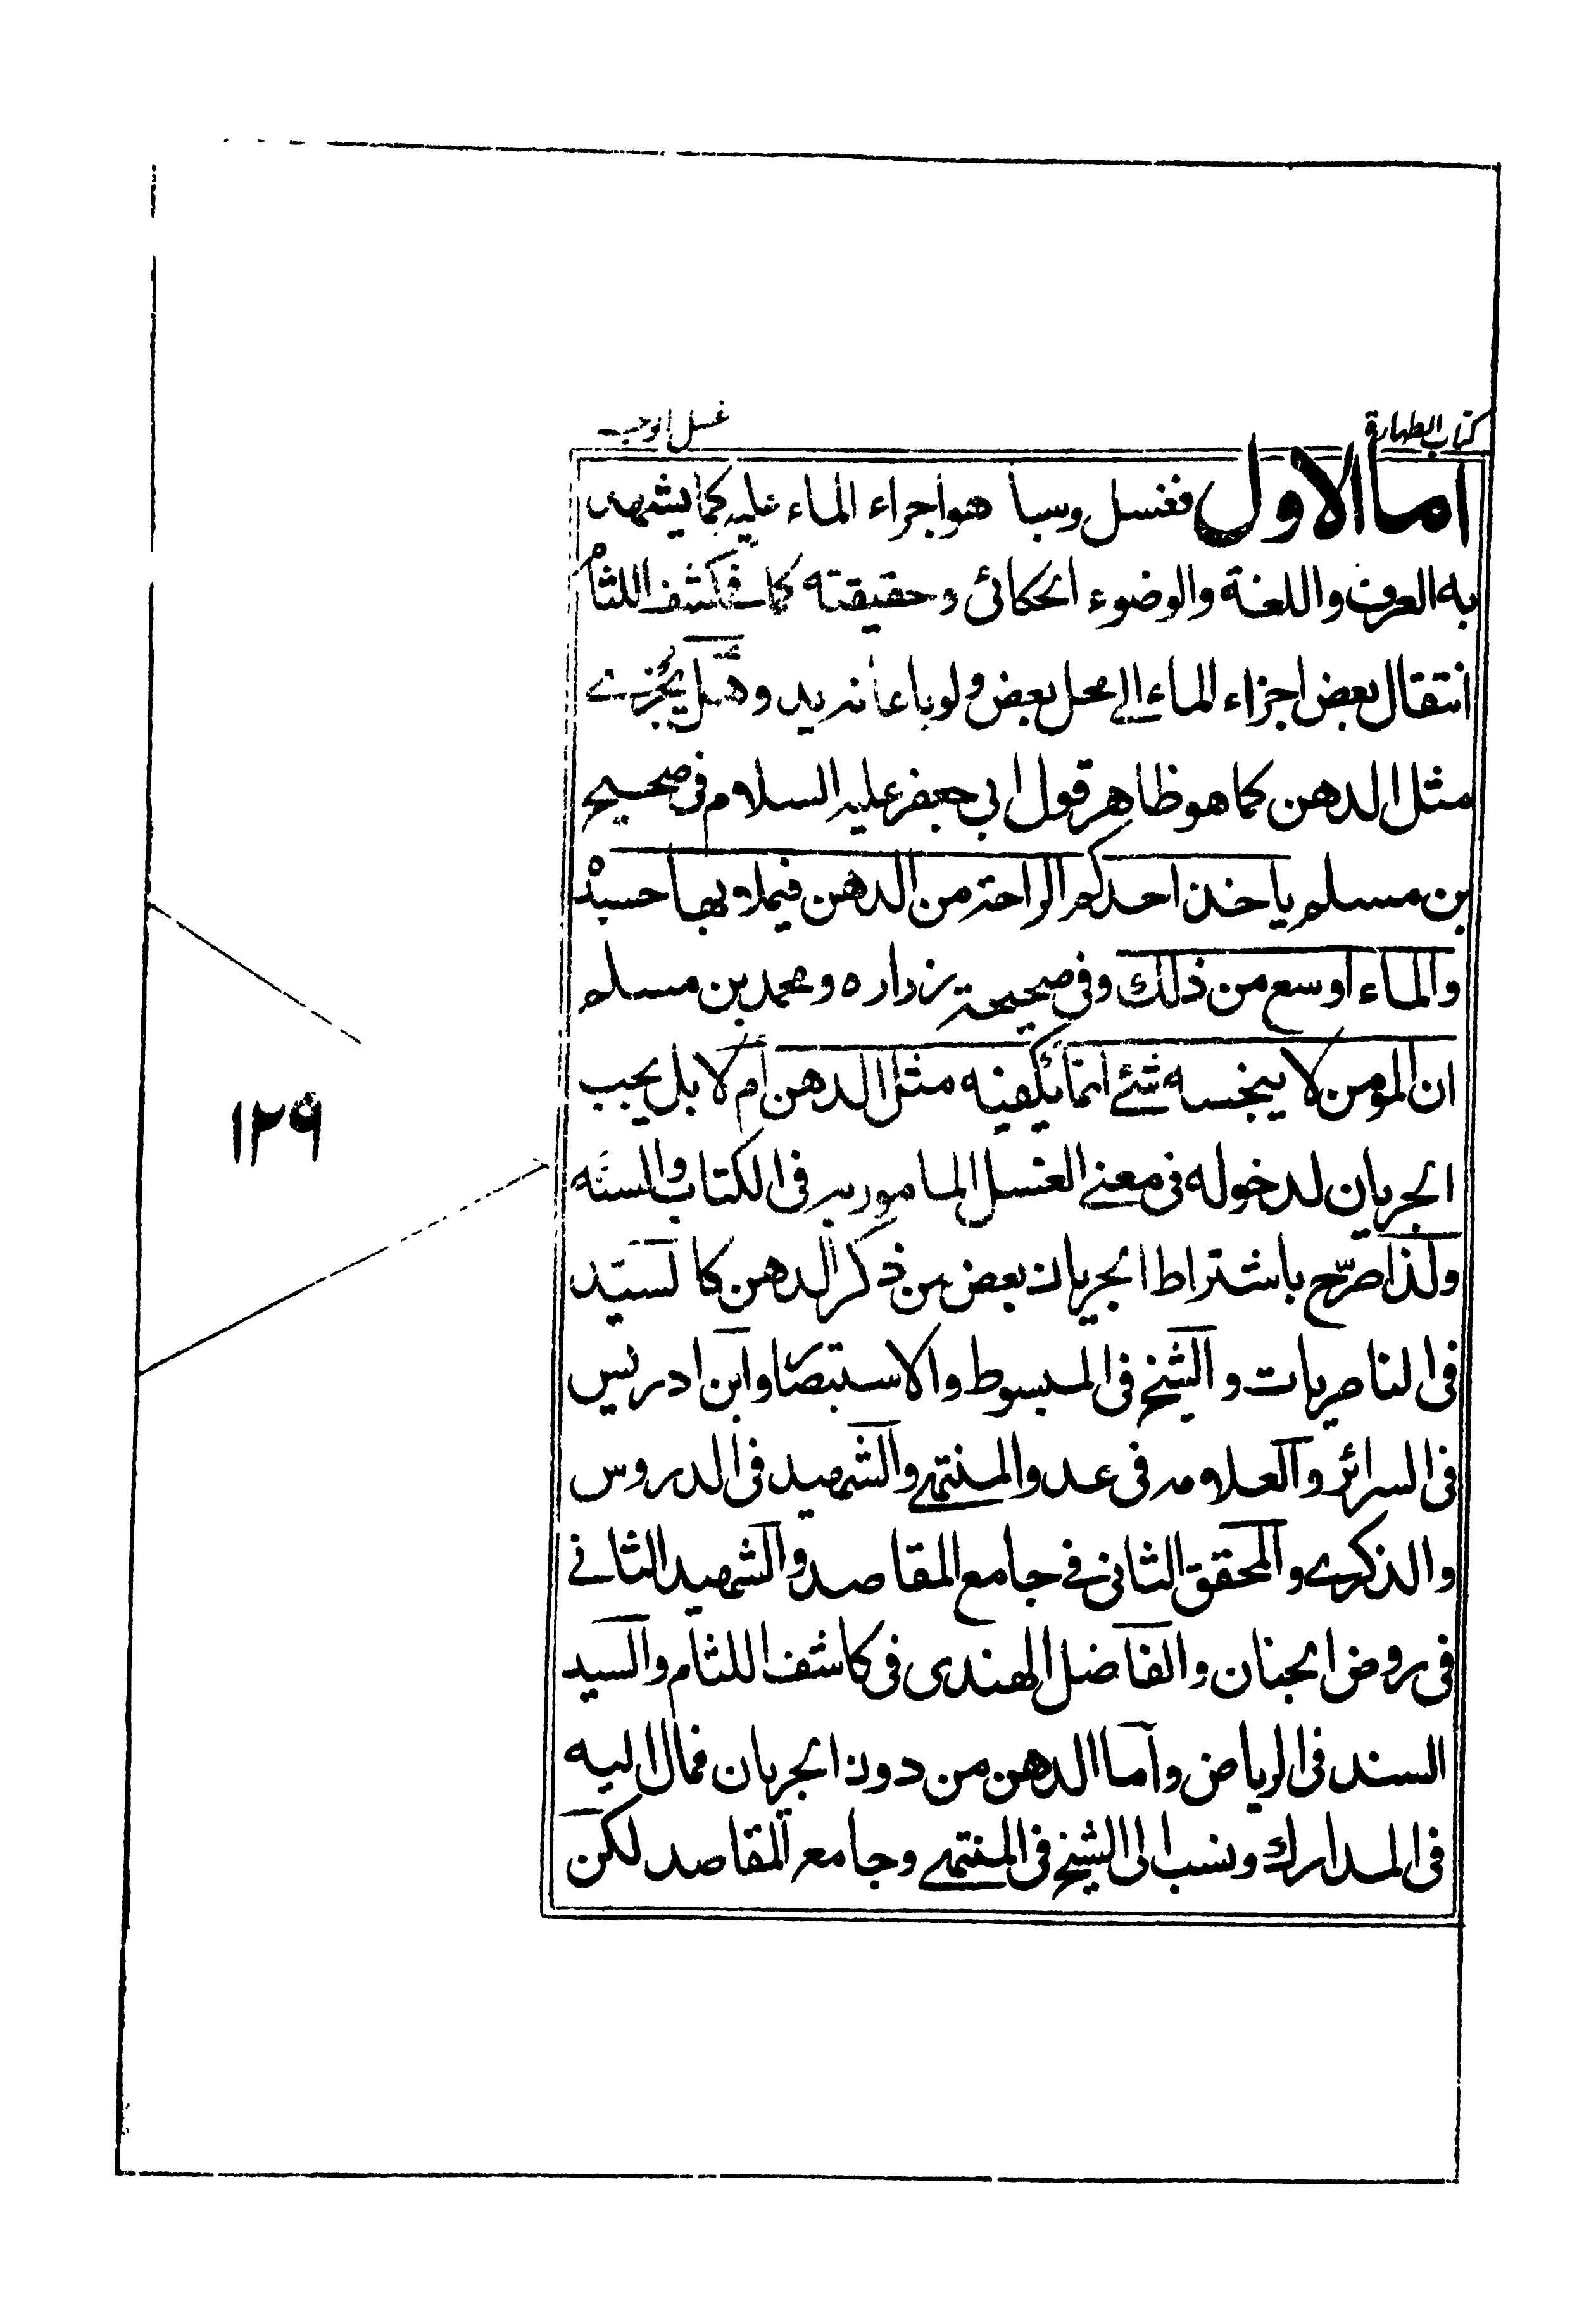 كتاب الطهارة
غسل الوجه
اما الاول فغسل وسبأ هو اجراء الماء عليه كما يشهد
به العرف واللغة والوضوء الحكائى وحقيقته كما فى كشف اللثام
انتقال بعض اجزاء الماء الى محل بعض ولو باعانة يد وهل يجزى
مثل الدهن كما هو ظاهر قول ابى جعفر عليه السلام فى صحيح
بن مسلم ياخذ احدكم الراحة من الدهن فيملاء بها جسده
والماء اوسع من ذلك وفى صحيحة زراره ومحمد بن مسلم
ان المومن لا ينجسه شئ انما يكفيه مثل الدهن ام لا بل يجب
الجريان لدخوله فى معنى الغسل المامور به فى الكتاب والسنه
ولذا صرّح باشتراط الجريان بعض من ذكر الدهن كالسيّد
فى الناصريات والشيخ فى المبسوط والاستبصار وابن ادريس
فى السرائر والعلامه فى عد والمنتهى والشهيد فى الدروس
والذكرى والمحقق الثانى فى جامع المقاصد والشهيد الثانى
فى روض الجنان والفاضل الهندى فى كاشف اللثام والسيد
السند فى الرياض واما الدهن من دون الجريان فمال اليه
فى المدارك ونسب الى الشيخ فى المنتهى وجامع المقاصد لكن
١٢٩